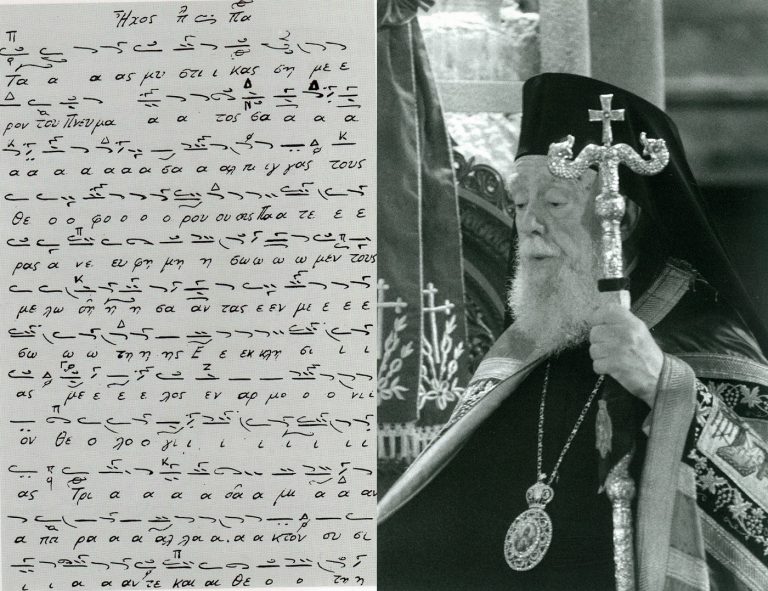 Ἦχος λ π̈ Πα
Τα α α ας μυ στι ι κας ση με ε
ρον του Πνευμα α α τος σα α α α
α α α α α α α σα α αλ πι ιγ γας τους
θε ο ο φο ο ο ο ρου ου ους Πα α τε ε ε
ρας α νε ευ φη μη η σω ω ω ω μεν τους
με λω δη η η σα αν τας ε εν με ε ε ε
σω ω ω τη η ης Ε ε εκ κλη σι ι ι
ας με ε ε ε λος εν αρ μο ο ο νι ι
ον θε ο λο ο γι ι ι ι ι ι ι ι
ας Τρι α α α α δα α μι α α αν
α πα ρα α α αλ λα α α α κτον ου σι
ι ι α α αν τε και αι θε ο ο τη η